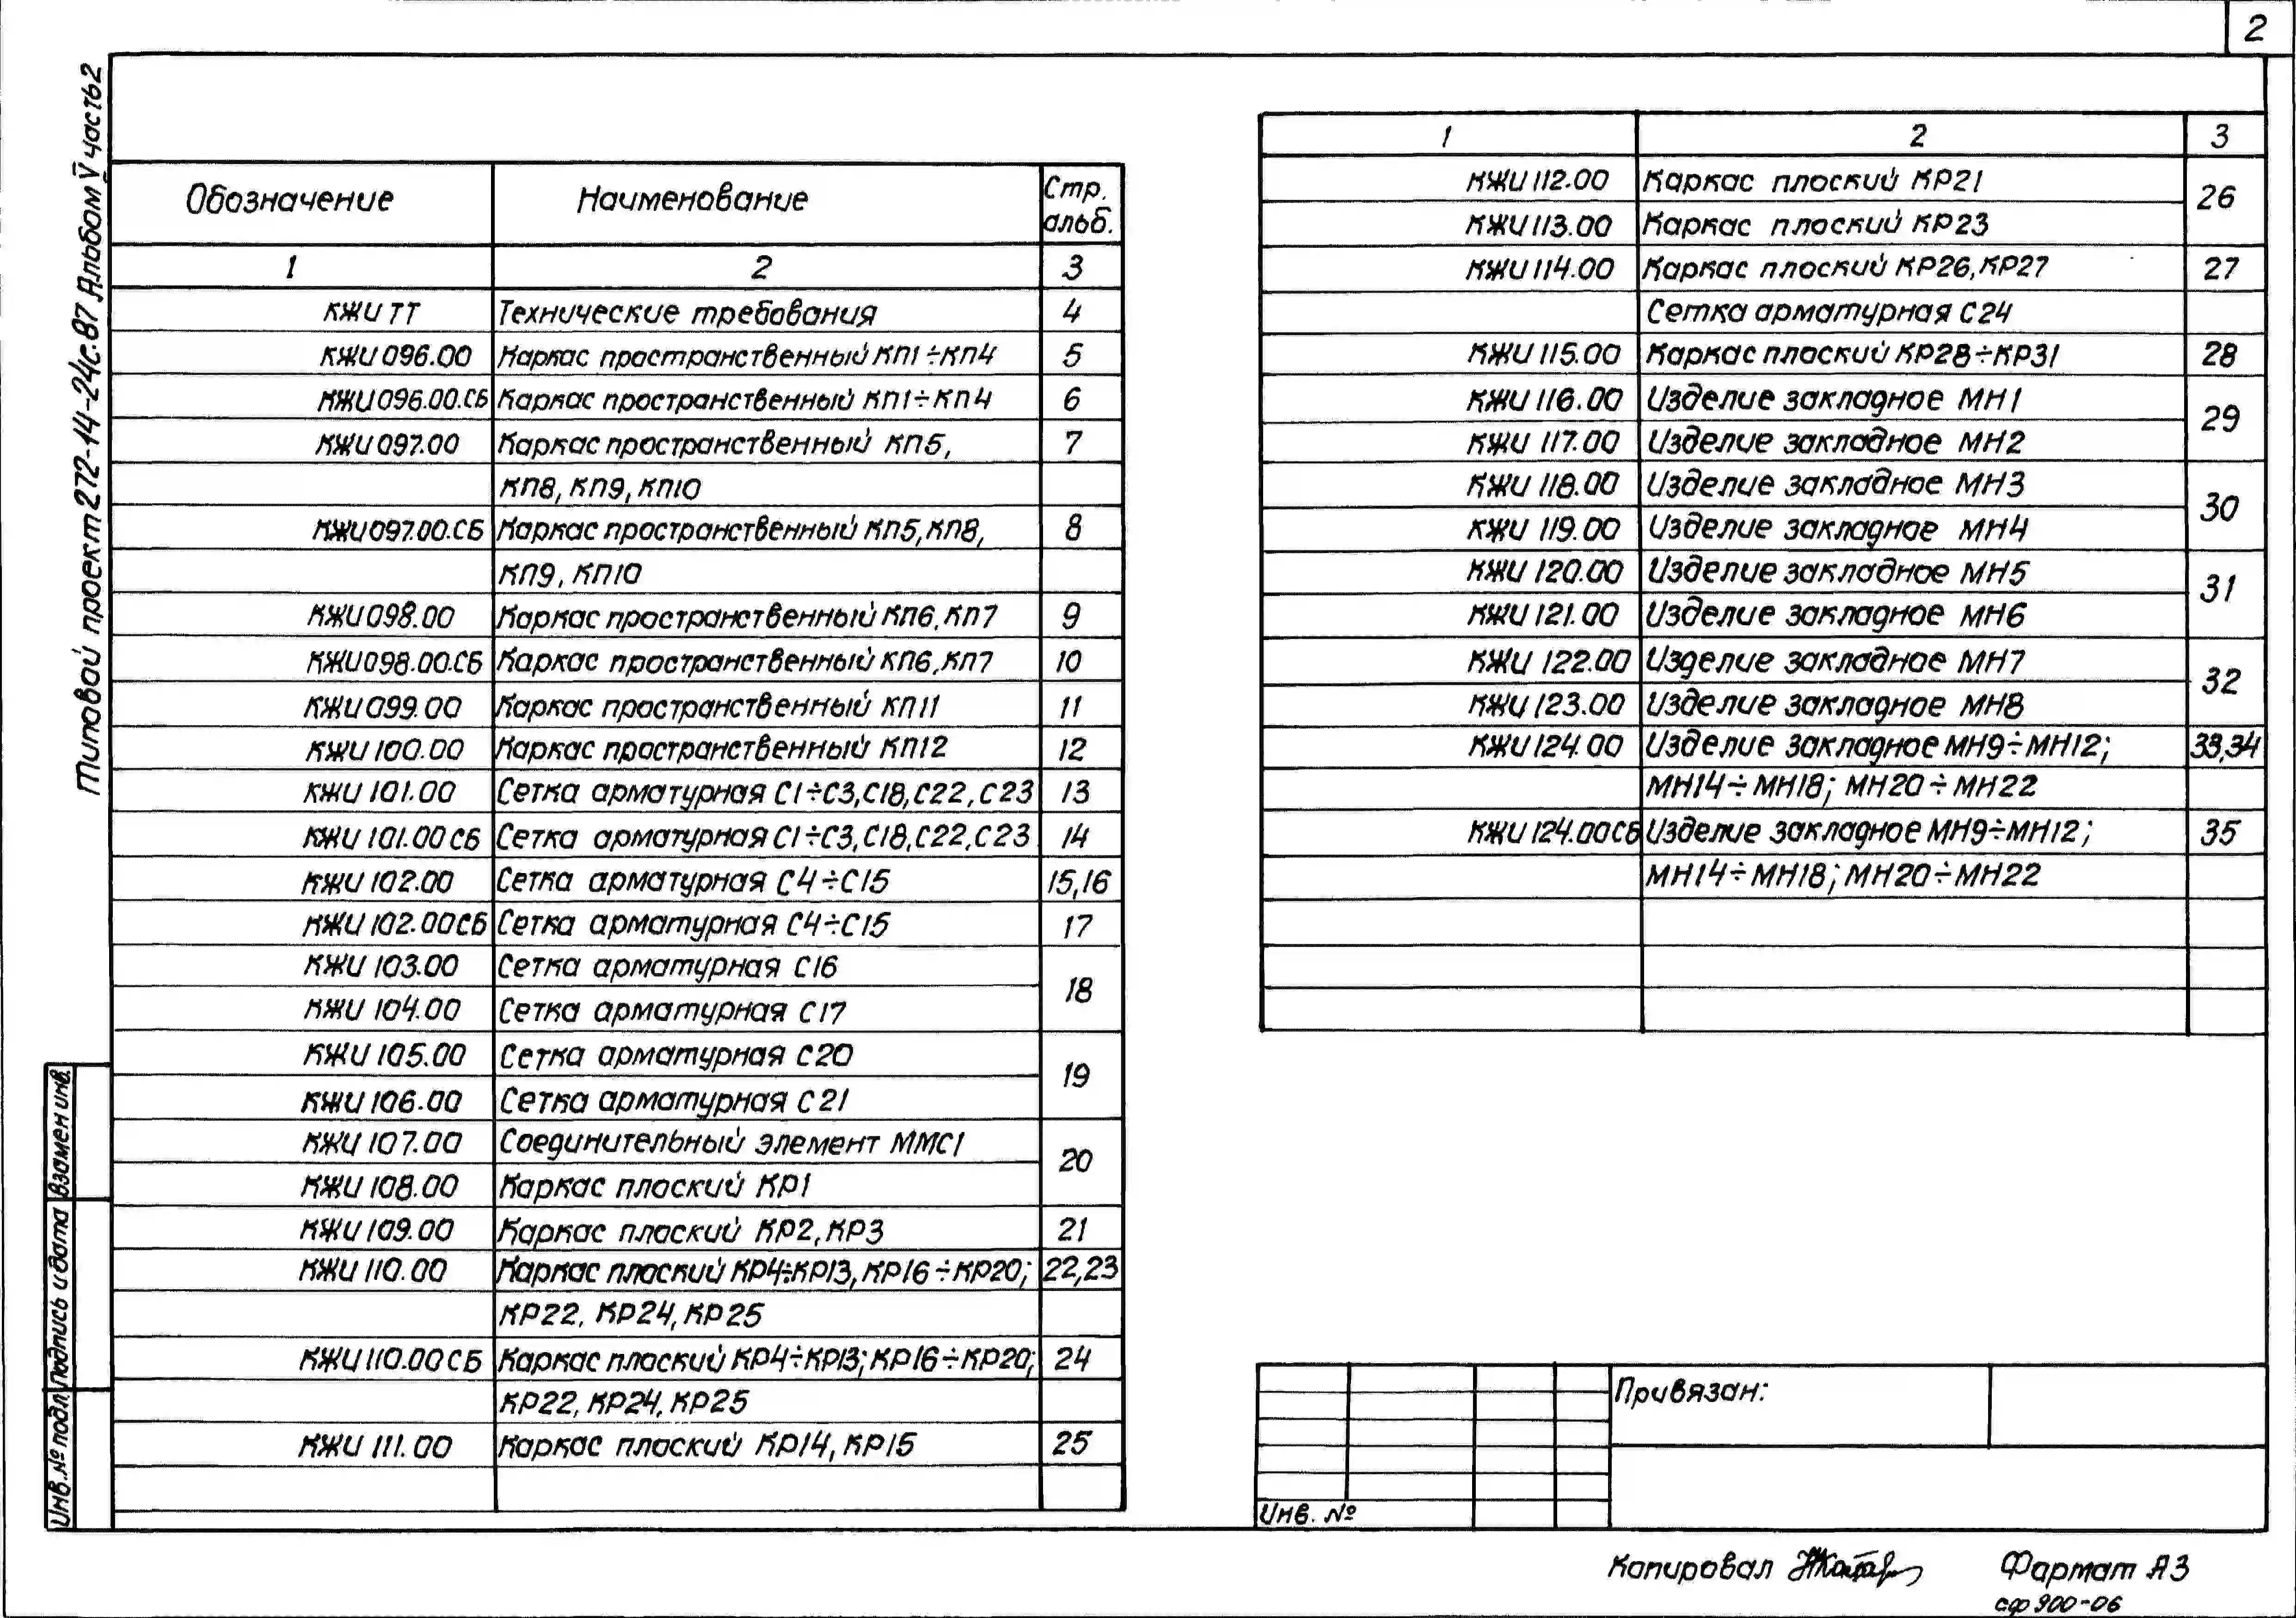 2
Типовой проект 272-14-24с.87 Альбом V часть 2
Обозначение Наименование Стр. альб.
1 2 3
КЖИ ТТ Технические требования 4
КЖИ 096.00 Каркас пространственный КП1÷КП4 5
КЖИ 096.00.СБ Каркас пространственный КП1÷КП4 6
КЖИ 097.00 Каркас пространственный КП5, 7
КП8, КП9, КП10
КЖИ 097.00.СБ Каркас пространственный КП5, КП8, 8
КП9, КП10
КЖИ 098.00 Каркас пространственный КП6, КП7 9
КЖИ 098.00.СБ Каркас пространственный КП6, КП7 10
КЖИ 099.00 Каркас пространственный КП11 11
КЖИ 100.00 Каркас пространственный КП12 12
КЖИ 101.00 Сетка арматурная С1÷С3, С18, С22, С23 13
КЖИ 101.00 СБ Сетка арматурная С1÷С3, С18, С22, С23 14
КЖИ 102.00 Сетка арматурная С4÷С15 15,16
КЖИ 102.00СБ Сетка арматурная С4÷С15 17
КЖИ 103.00 Сетка арматурная С16 18
КЖИ 104.00 Сетка арматурная С17
КЖИ 105.00 Сетка арматурная С20 19
КЖИ 106.00 Сетка арматурная С21
КЖИ 107.00 Соединительный элемент ММС1 20
КЖИ 108.00 Каркас плоский КР1
КЖИ 109.00 Каркас плоский КР2, КР3 21
КЖИ 110.00 Каркас плоский КР4÷КР13, КР16÷КР20; 22,23
КР22, КР24, КР25
КЖИ 110.00 СБ Каркас плоский КР4÷КР13; КР16÷КР20; 24
КР22, КР24, КР25
КЖИ 111.00 Каркас плоский КР14, КР15 25
1 2 3
КЖИ 112.00 Каркас плоский КР21 26
КЖИ 113.00 Каркас плоский КР23
КЖИ 114.00 Каркас плоский КР26, КР27 27
Сетка арматурная С24
КЖИ 115.00 Каркас плоский КР28÷КР31 28
КЖИ 116.00 Изделие закладное МН1 29
КЖИ 117.00 Изделие закладное МН2
КЖИ 118.00 Изделие закладное МН3 30
КЖИ 119.00 Изделие закладное МН4
КЖИ 120.00 Изделие закладное МН5 31
КЖИ 121.00 Изделие закладное МН6
КЖИ 122.00 Изделие закладное МН7 32
КЖИ 123.00 Изделие закладное МН8
КЖИ 124.00 Изделие закладное МН9÷МН12; 33,34
МН14÷МН18; МН20÷МН22
КЖИ 124.00СБ Изделие закладное МН9÷МН12; 35
МН14÷МН18; МН20÷МН22
Взамен инв.
Подпись и дата
Инв. № подл.
Привязан:
Инв. №
Копировал
Формат А3
сф 900-06